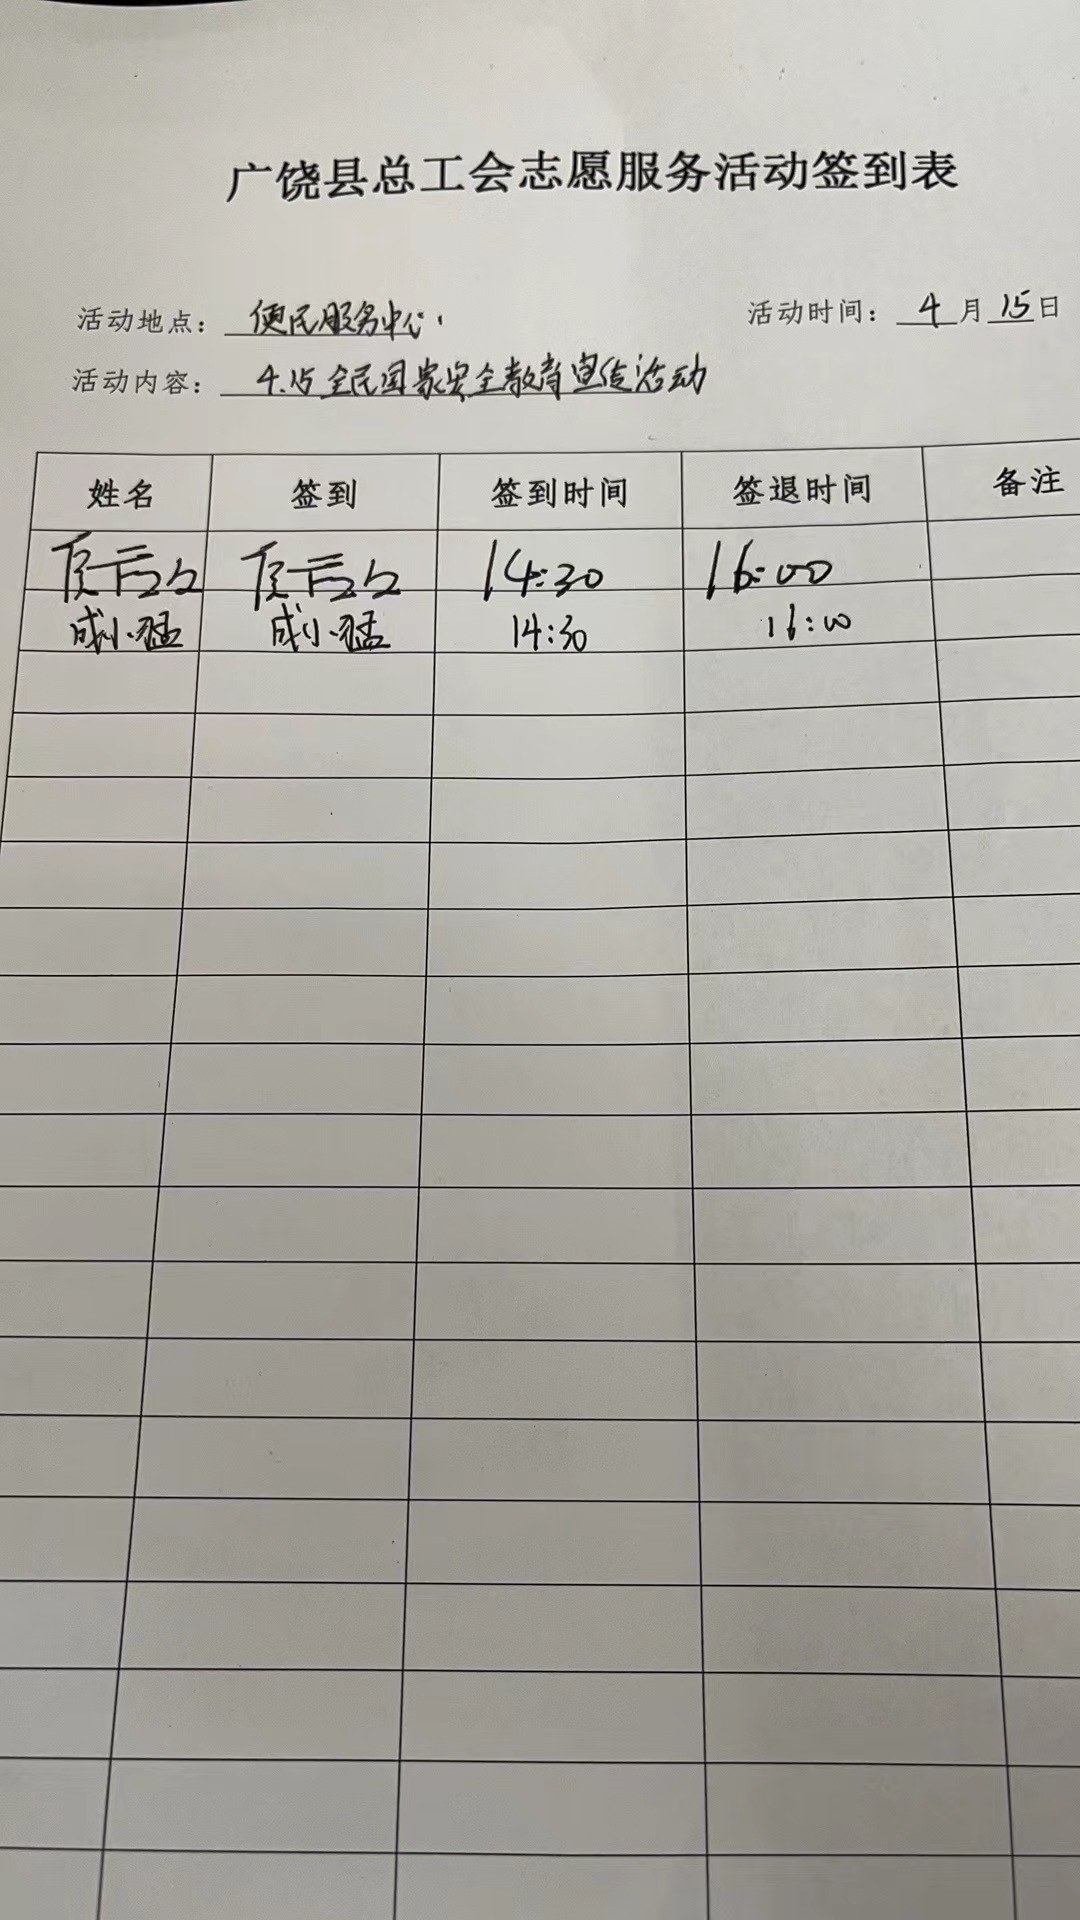 广饶县总工会志愿服务活动签到表
活动地点：便民服务中心 活动时间：4月15日
活动内容：4.15全民国家安全教育宣传活动
姓名 签到 签到时间 签退时间 备注
14:30 16:00
成小猛 成小猛 14:30 16:00